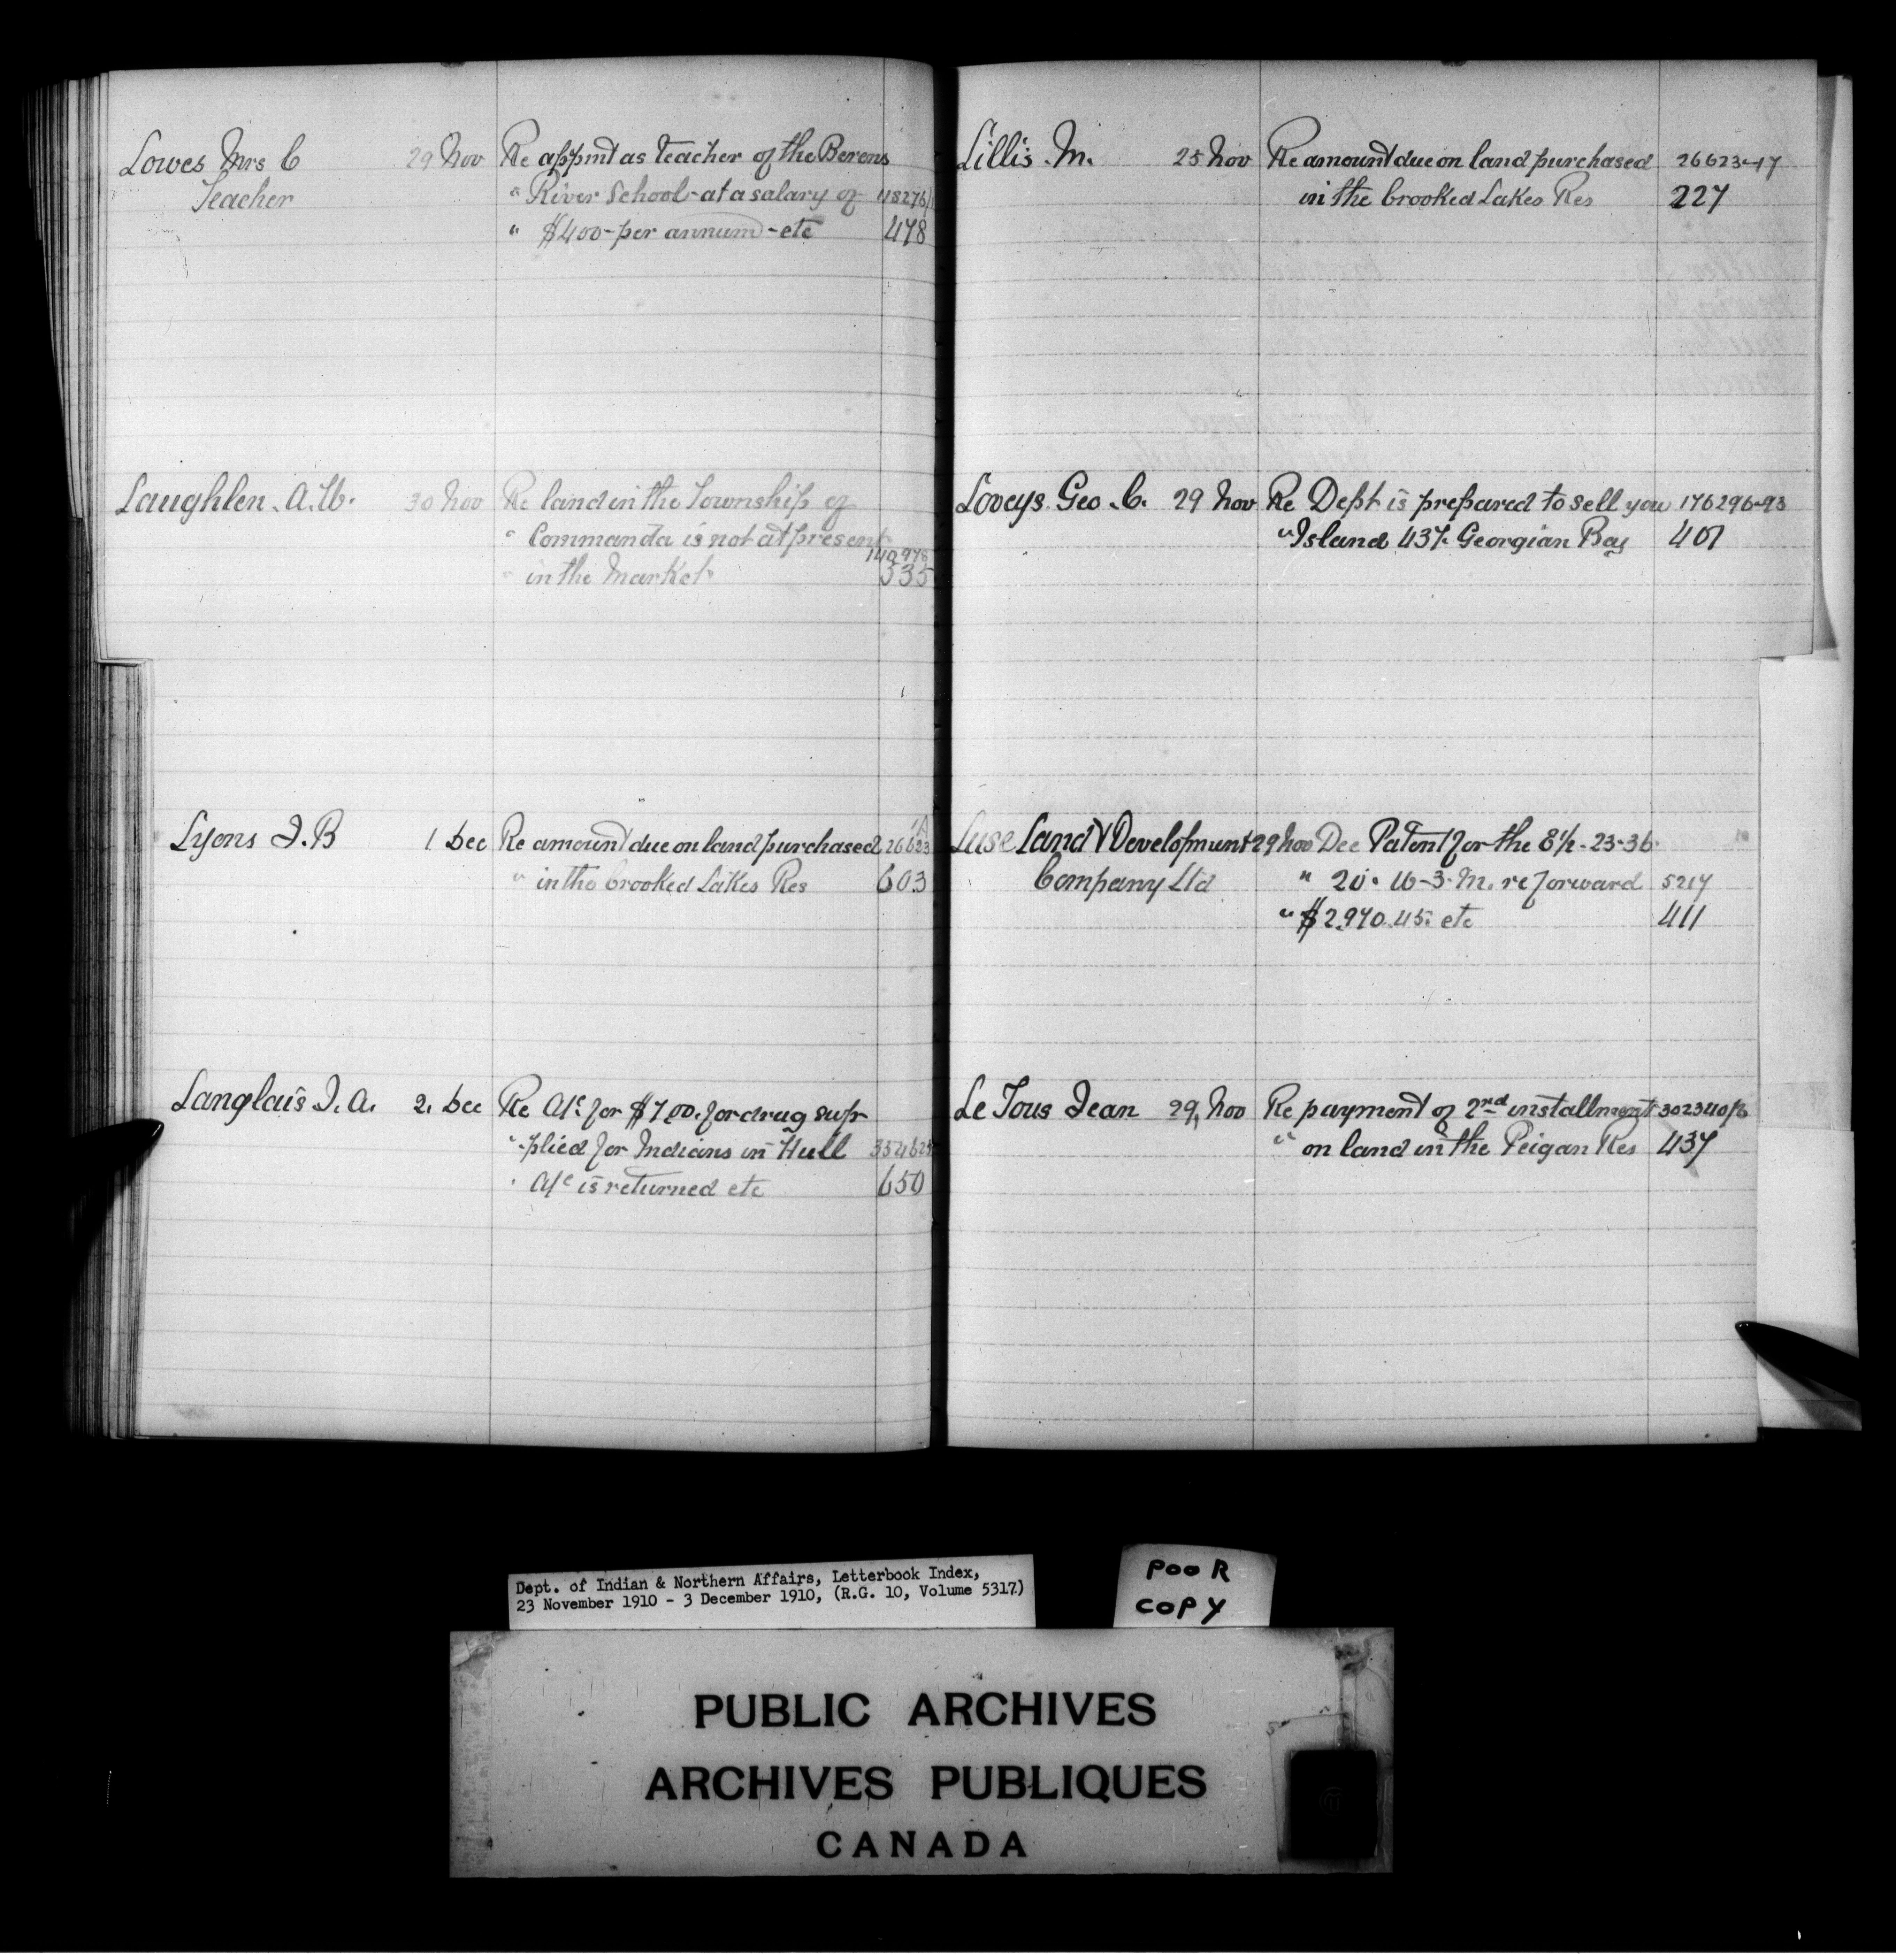 Lowes Mrs C 29 Nov Re appmt as teacher of the Berens
Teacher " River School - at a salary of
" $400 - per annum - etc 478
Laughlen. A. W. 30 Nov Re land in the Township of
" Commanda is not at present 140978
" in the Market 535
Lyons J. B 1 Dec Re amount due on land purchased 26623
" in the Crooked Lakes Res 603
Langlais J. A. 2. Dec Re A/c for $7.00. for drug sup-
" -plied for Indians in Hull
" A/c is returned etc 650
Lillis. M. 25 Nov Re amount due on land purchased 26623-17
in the Crooked Lakes Res 227
Loveys Geo. C. 29 Nov Re Dept is prepared to sell you 176296-93
" Island 437. Georgian Bay 401
Luse Land & Development 29 Nov Dec Patent for the E 1/2 - 23-36.
Company Ltd " 20. W-3-M. re forward 5217
" $2,970.45. etc 411
Le Tous Jean 29, Nov Re payment of 2nd installment
" on land in the Peigan Res 437
Dept. of Indian & Northern Affairs, Letterbook Index,
23 November 1910 - 3 December 1910, (R.G. 10, Volume 5317)
POOR
COPY
PUBLIC ARCHIVES
ARCHIVES PUBLIQUES
CANADA